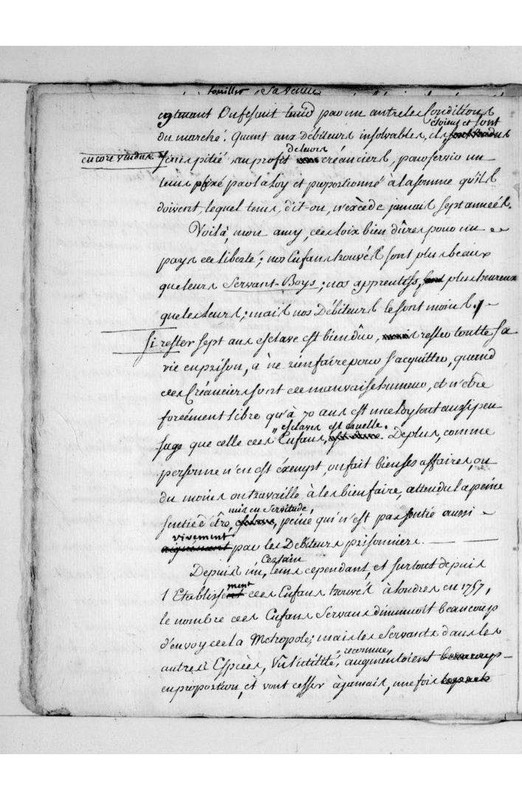 mouiller
contenant Du fesoit tenud par une autre les Conditions
du marché. Quant aux Débiteurs insolvables, ils sont
encore vendus
au profit de leurs créanciers, pour servir un
tems fixé par la Loy et proportionné a la somme qu'ils
doivent, lequel tems, dit-on, n'excède jamais sept années.
Voilà, mon amy, des loix bien dûres pour un
pays de liberté; nos Enfans trouvés sont plus heureux
que leurs Servant-Boys; nos apprentifs, plus heureux
que les leurs; mais nos Débiteurs le sont moins.
Si rester sept ans esclave est bien dûr, rester toutte sa
vie en prison, a ne rien faire pour s'acquitter, quand
des Créanciers sont de mauvaise humeur, et n'etre
forcément libre qu'à 70 ans est une Loy tout aussi peu
esclaves est cruelle.
sage que celle des Enfans. De plus, comme
personne n'en est exempt, on fait bien ses affaires, ou
du moins on travaille à les bien faire, attendu la peine
mis en servitude,
sentie d'etre, peine qui n'est pas sentie aussi
vivement
par les Debiteurs prisonniers.
Certain
Depuis un tems cependant, et surtout depuis
l'Etablissement des Enfans trouvés à Londres en 1757,
le nombre des Enfans Servans diminuoit beaucoup
d'envoy de la Metropole; mais les Servants dans les
autres Espèces augmentoient
en proportion, et vont cesser à jamais, une fois